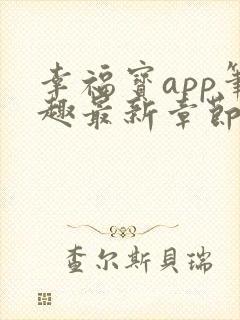 幸福寶app筆
趣最新章節
查尔斯貝瑞